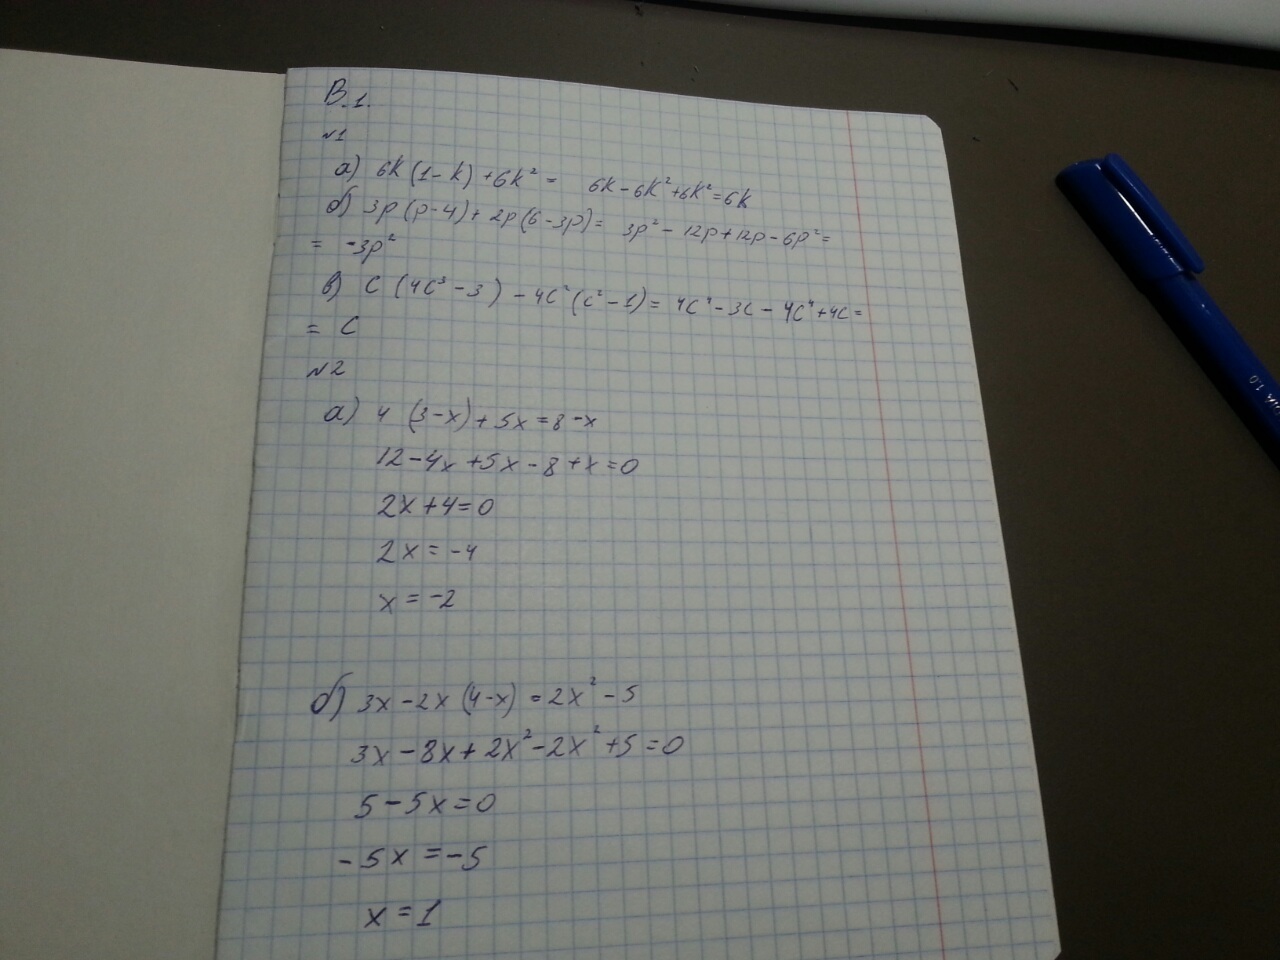 В.1.
№1
а) 6k(1-k)+6k²= 6k-6k²+6k²=6k
б) 3p(p-4)+2p(6-3p)= 3p²-12p+12p-6p²=
= -3p²
в) c(4c³-3)-4c²(c²-1)= 4c⁴-3c-4c⁴+4c=
= c
№2
а) 4(3-x)+5x=8-x
12-4x+5x-8+x=0
2x+4=0
2x=-4
x=-2
б) 3x-2x(4-x)=2x²-5
3x-8x+2x²-2x²+5=0
5-5x=0
-5x=-5
x=1
1.0